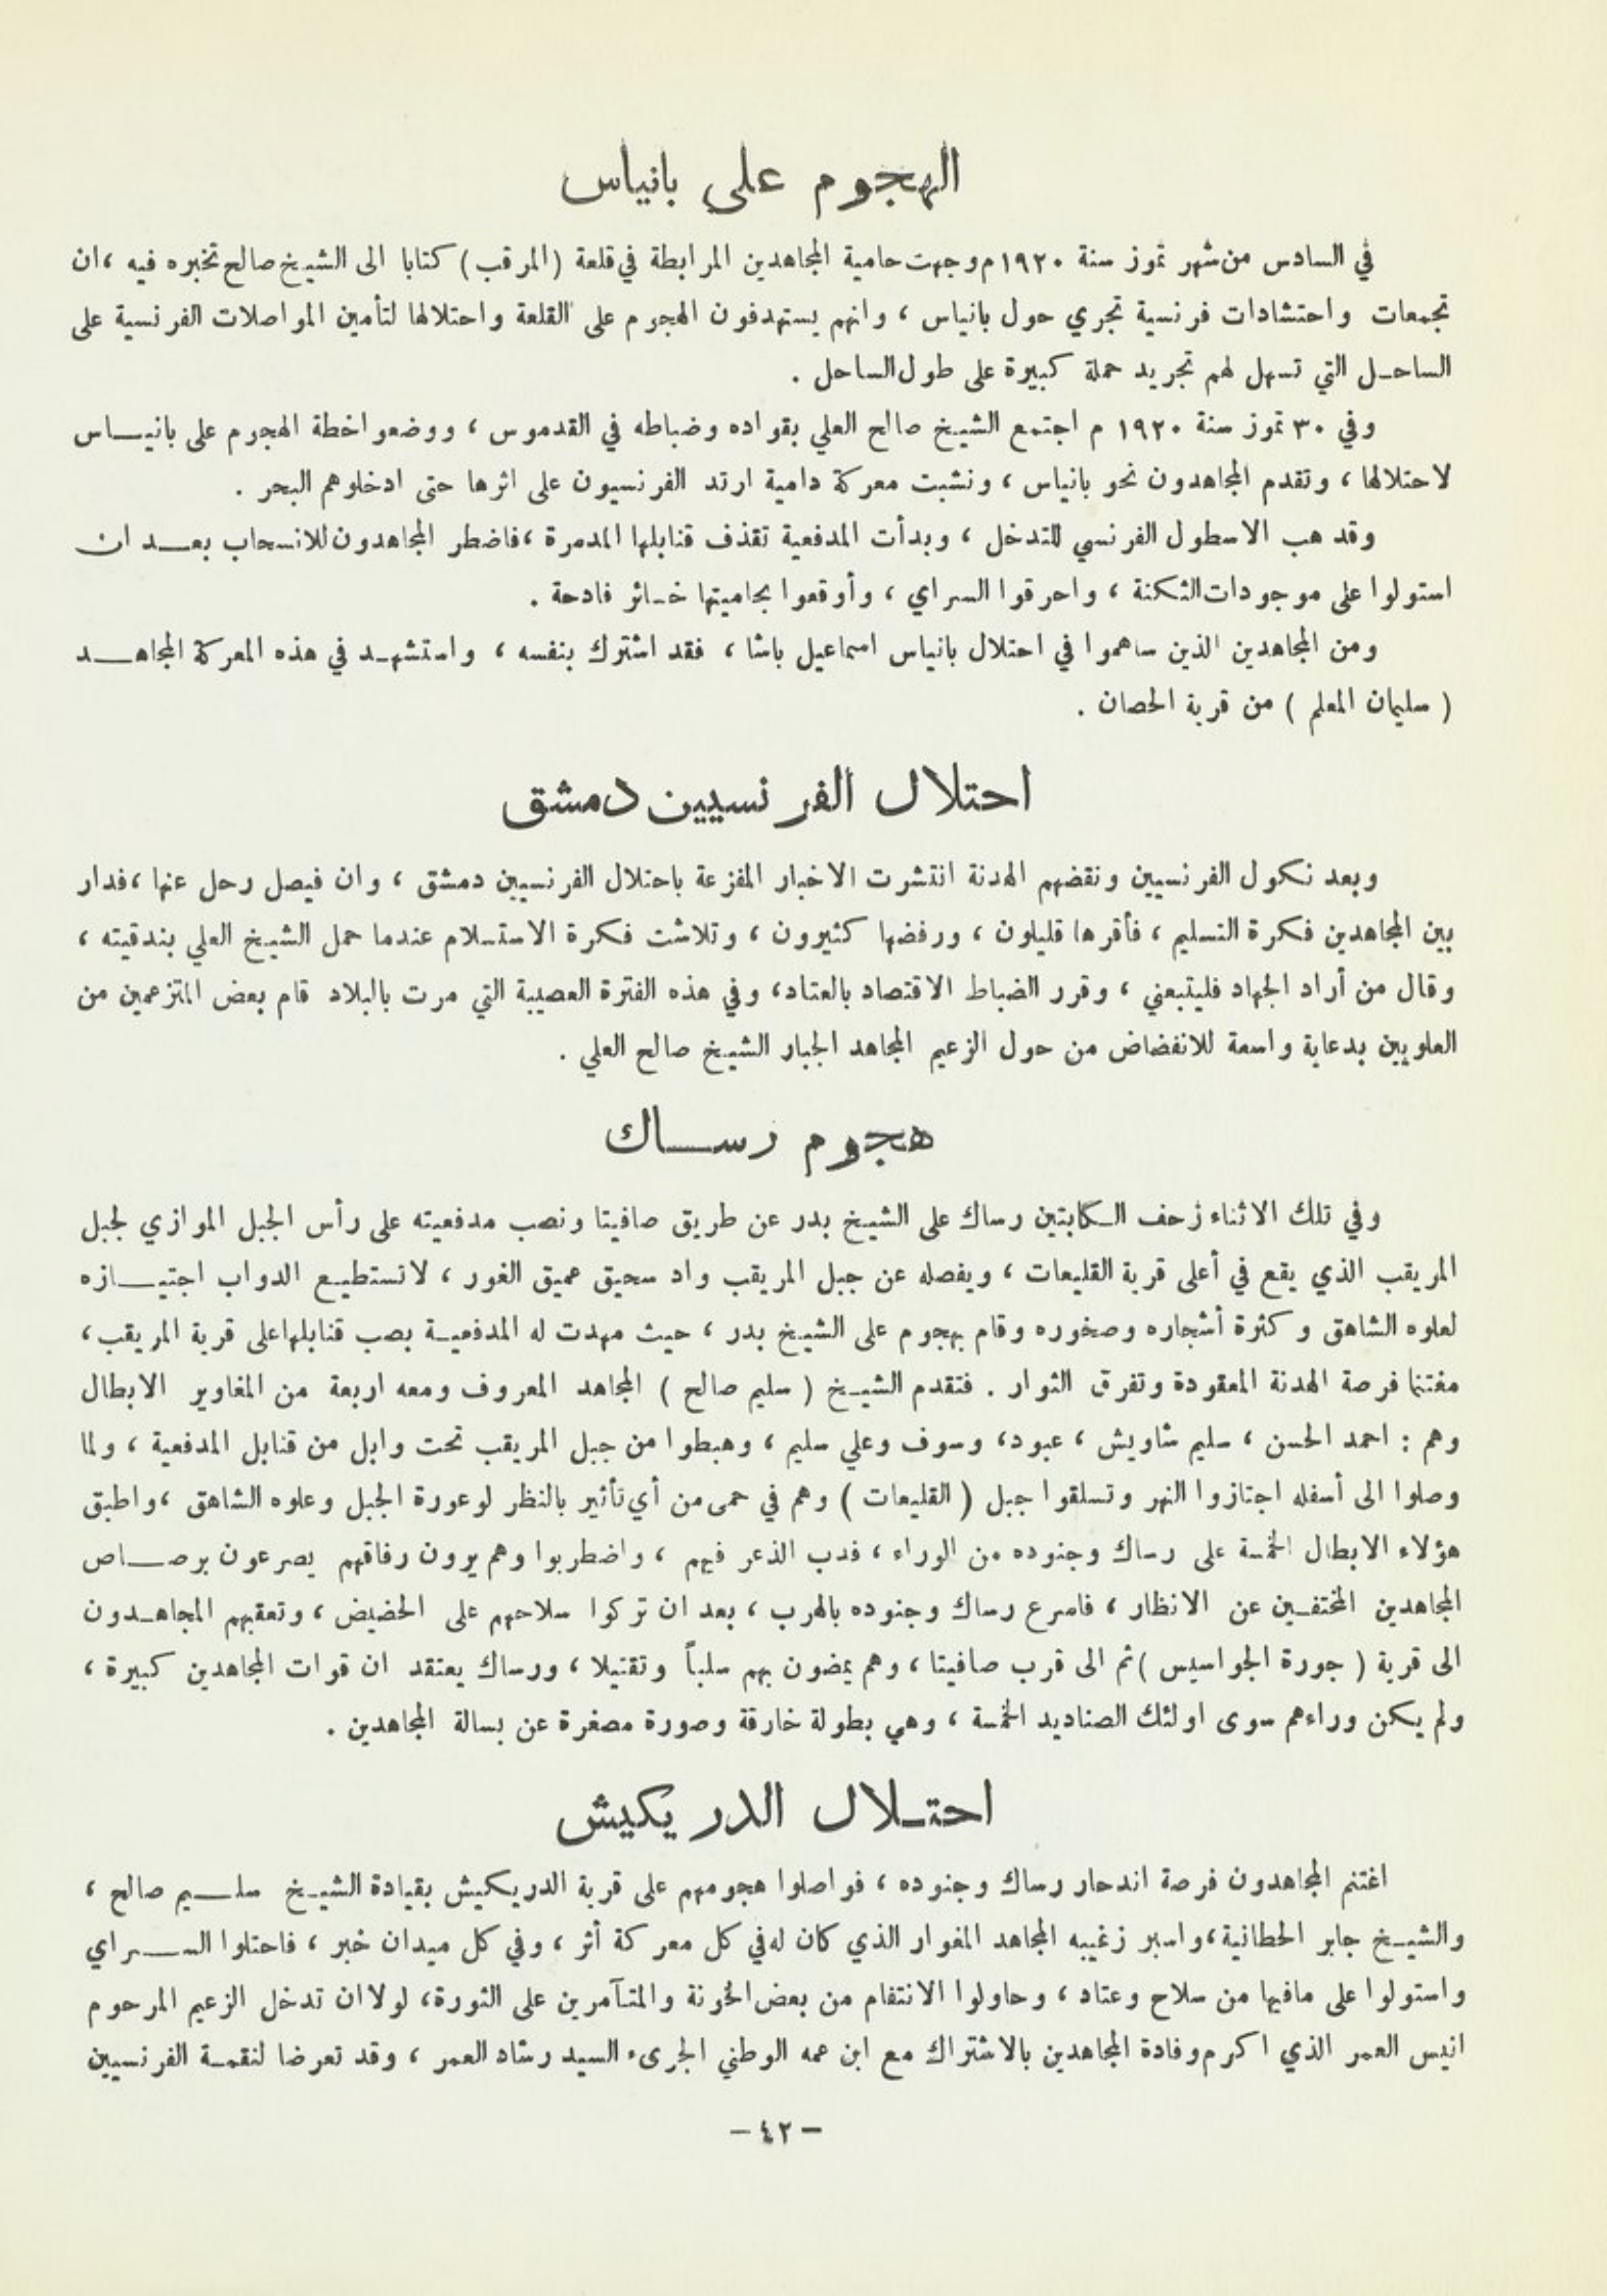 الهجوم على بانياس
في السادس من شهر تموز سنة ١٩٢٠م وجهت حامية المجاهدين المرابطة في قلعة (المرقب) كتابا الى الشيخ صالح تخبره فيه ، ان
تجمعات واحتشادات فرنسية تجري حول بانياس ، وانهم يستهدفون الهجوم على القلعة واحتلالها لتأمين المواصلات الفرنسية على
الساحل التي تسهل لهم تجريد حملة كبيرة على طول الساحل .
وفي ٣٠ تموز سنة ١٩٢٠ م اجتمع الشيخ صالح العلي بقواده وضباطه في القدموس ، ووضعوا خطة الهجوم على بانيــاس
لاحتلالها ، وتقدم المجاهدون نحو بانياس ، ونشبت معركة دامية ارتد الفرنسيون على اثرها حتى ادخلوهم البحر .
وقد هب الاسطول الفرنسي للتدخل ، وبدأت المدفعية تقذف قنابلها المدمرة ، فاضطر المجاهدون للانسحاب بعــد ان
استولوا على موجودات الثكنة ، واحرقوا السراي ، وأوقعوا بحاميتها خسائر فادحة .
ومن المجاهدين الذين ساهموا في احتلال بانياس اسماعيل باشا ، فقد اشترك بنفسه ، واستشهد في هذه المعركة المجاهــد
( سليمان المعلم ) من قرية الحصان .
احتلال الفرنسيين دمشق
وبعد نكول الفرنسيين ونقضهم الهدنة انتشرت الاخبار المفزعة باحتلال الفرنسيين دمشق ، وان فيصل رحل عنها ، فدار
بين المجاهدين فكرة التسليم ، فأقرها قليلون ، ورفضها كثيرون ، وتلاشت فكرة الاستسلام عندما حمل الشيخ العلي بندقيته ،
وقال من أراد الجهاد فليتبعني ، وقرر الضباط الاقتصاد بالعتاد، وفي هذه الفترة العصيبة التي مرت بالبلاد قام بعض المتزعمين من
العلويين بدعاية واسعة للانفضاض من حول الزعيم المجاهد الجبار الشيخ صالح العلي .
هجوم رســاك
وفي تلك الاثناء زحف الكابتين رساك على الشيخ بدر عن طريق صافيتا ونصب مدفعيته على رأس الجبل الموازي لجبل
المريقب الذي يقع في أعلى قرية القليعات ، ويفصله عن جبل المريقب واد سحيق عميق الغور ، لا تستطيع الدواب اجتيــازه
لعلوه الشاهق وكثرة أشجاره وصخوره وقام بهجوم على الشيخ بدر ، حيث مهدت له المدفعية بصب قنابلها على قرية المريقب ،
مغتنما فرصة الهدنة المعقودة وتفرق الثوار . فتقدم الشيخ ( سليم صالح ) المجاهد المعروف ومعه اربعة من المغاوير الابطال
وهم : احمد الحسن ، سليم شاويش ، عبود، وسوف وعلي سليم ، وهبطوا من جبل المريقب تحت وابل من قنابل المدفعية ، ولما
وصلوا الى أسفله اجتازوا النهر وتسلقوا جبل ( القليعات ) وهم في حمى من أي تأثير بالنظر لوعورة الجبل وعلوه الشاهق ، واطبق
هؤلاء الابطال الخمسة على رساك وجنوده من الوراء ، فدب الذعر فيهم ، واضطربوا وهم يرون رفاقهم يصرعون برصــاص
المجاهدين المختفين عن الانظار ، فاسرع رساك وجنوده بالهرب ، بعد ان تركوا سلاحهم على الحضيض ، وتعقبهم المجاهدون
الى قرية ( جورة الجواسيس ) ثم الى قرب صافيتا ، وهم يمضون بهم سلباً وتقتيلا ، ورساك يعتقد ان قوات المجاهدين كبيرة ،
ولم يكن وراءهم سوى اولئك الصناديد الخمسة ، وهي بطولة خارقة وصورة مصغرة عن بسالة المجاهدين .
احتـلال الدريكيش
اغتنم المجاهدون فرصة اندحار رساك وجنوده ، فواصلوا هجومهم على قرية الدريكيش بقيادة الشيخ سلــيم صالح ،
والشيخ جابر الحطانية ، واسبر زغيبه المجاهد المغوار الذي كان له في كل معركة أثر ، وفي كل ميدان خبر ، فاحتلوا الســراي
واستولوا على مافيها من سلاح وعتاد ، وحاولوا الانتقام من بعض الخونة والمتآمرين على الثورة، لولا ان تدخل الزعيم المرحوم
انيس العمر الذي اكرم وفادة المجاهدين بالاشتراك مع ابن عمه الوطني الجرىء السيد رشاد العمر ، وقد تعرضا لنقمة الفرنسيين
- ٤٢ -